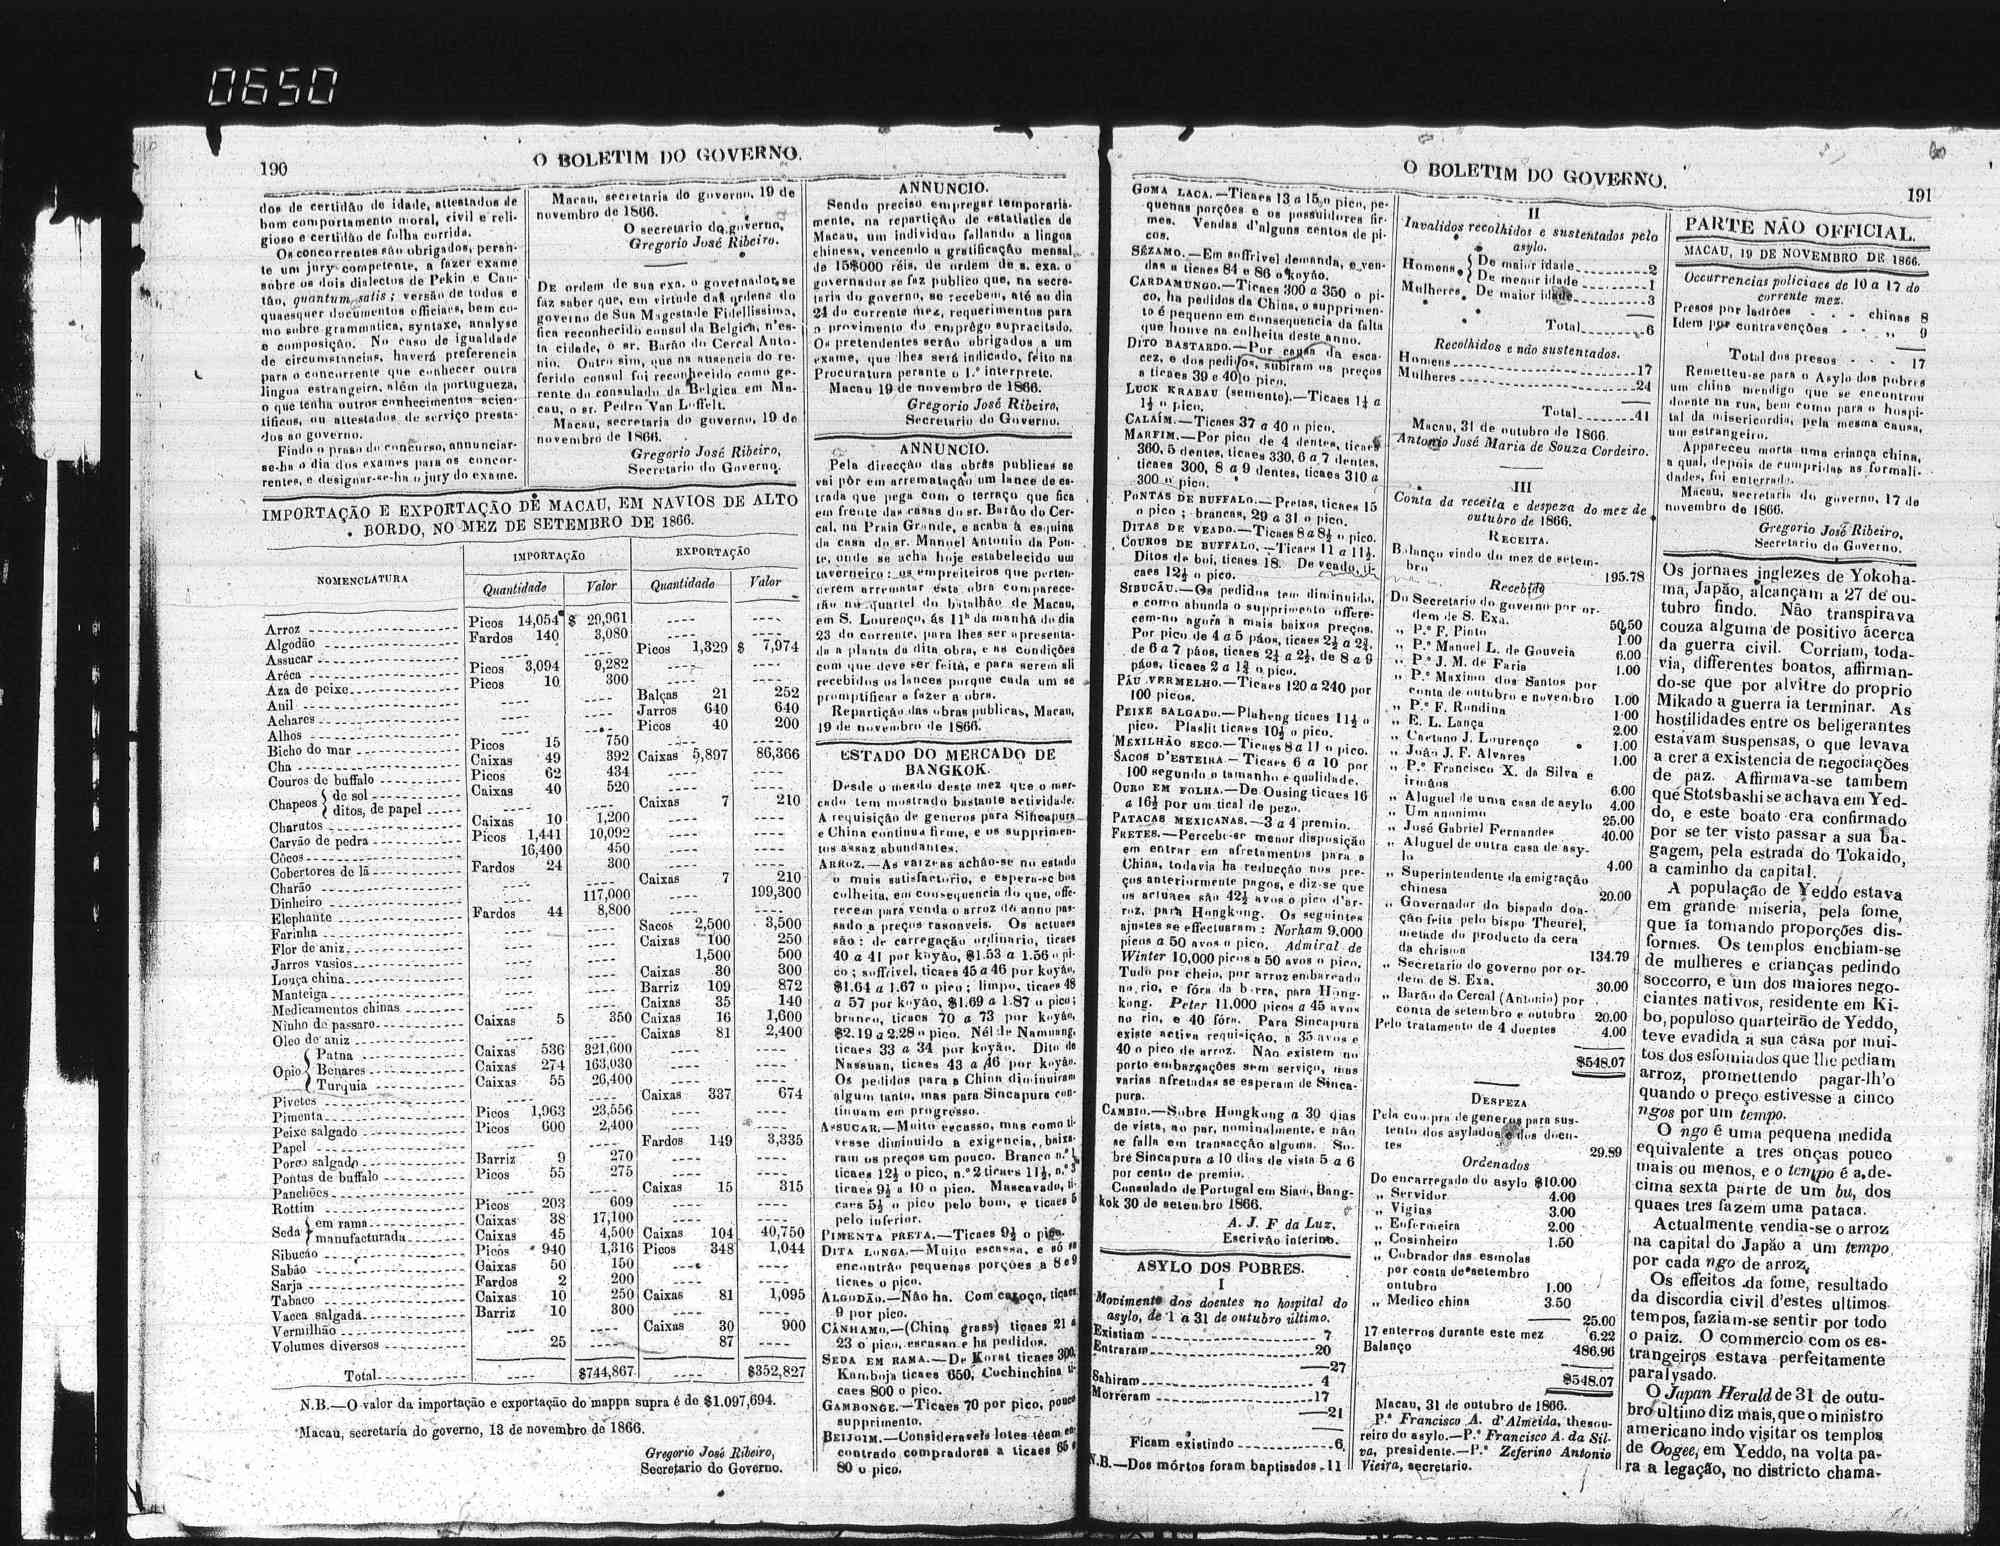 0650
190
O BOLETIM DO GOVERNO.
dos de certidão de idade, attestados de
bom comportamento moral, civil e reli-
gioso e certidão de folha corrida.
Os concorrentes são obrigados, peran-
te um jury competente, a fazer exame
sobre os dois dialectos de Pekin e Can-
tão, quantum satis; versão de todos e
quaesquer documentos officiaes, bem co-
mo sobre grammatica, syntaxe, analyse
e composição. No caso de igualdade
de circumstancias, haverá preferencia
para o concorrente que conhecer outra
lingua estrangeira, além da portugueza,
o que tenha outros conhecimentos scien-
tificos, ou attestados de serviço presta-
dos ao governo.
Findo o praso do concurso, annunciar-
se-ha o dia dos exames para os concor-
rentes, e designar-se-ha o jury do exame.
Macau, secretaria do governo, 19 de
novembro de 1866.
O secretario do governo,
Gregorio José Ribeiro.
DE ordem de sua exa. o governador, se
faz saber que, em virtude das ordens do
governo de Sua Magestade Fidellissima,
fica reconhecido consul da Belgica, n'es-
ta cidade, o sr. Barão do Cercal Anto-
nio. Outro sim, que na ausencia do re-
ferido consul foi reconhecido como ge-
rente do consulado da Belgica em Ma-
cau, o sr. Pedro Van Loffelt.
Macau, secretaria do governo, 19 de
novembro de 1866.
Gregorio José Ribeiro,
Secretario do Governo.
IMPORTAÇÃO E EXPORTAÇÃO DE MACAU, EM NAVIOS DE ALTO
BORDO, NO MEZ DE SETEMBRO DE 1866.
NOMENCLATURA IMPORTAÇÃO EXPORTAÇÃO
Quantidade Valor Quantidade Valor
Arroz Picos 14,054 $ 29,961
Algodão Fardos 140 3,080
Assucar Picos 1,329 $ 7,974
Aréca Picos 3,094 9,282
Aza de peixe Picos 10 300
Anil Balças 21 252
Achares Jarros 640 640
Alhos Picos 40 200
Bicho do mar Picos 15 750
Cha Caixas 49 392 Caixas 5,897 86,366
Couros de buffalo Picos 62 434
Chapeos { de sol Caixas 40 520
ditos, de papel Caixas 7 210
Charutos Caixas 10 1,200
Carvão de pedra Picos 1,441 10,092
Côcos 16,400 450
Cobertores de lã Fardos 24 300
Charão Caixas 7 210
Dinheiro 117,000 199,300
Elephante Fardos 44 8,800
Farinha Sacos 2,500 3,500
Flor de aniz Caixas 100 250
Jarros vasios 1,500 500
Louça china Caixas 30 300
Manteiga Barriz 109 872
Medicamentos chinas Caixas 35 140
Ninho de passaro Caixas 5 350 Caixas 16 1,600
Oleo de aniz Caixas 81 2,400
Opio { Patna Caixas 536 321,600
Benares Caixas 274 163,030
Turquia Caixas 55 26,400
Pivetes Caixas 337 674
Pimenta Picos 1,963 23,556
Peixe salgado Picos 600 2,400
Papel Fardos 149 3,335
Porco salgado Barriz 9 270
Pontas de buffalo Picos 55 275
Panchões Caixas 15 315
Rottim Picos 203 609
Seda { em rama Caixas 38 17,100
manufacturada Caixas 45 4,500 Caixas 104 40,750
Sibucão Picos 940 1,316 Picos 348 1,044
Sabão Caixas 50 150
Sarja Fardos 2 200
Tabaco Caixas 10 250 Caixas 81 1,095
Vacca salgada Barriz 10 300
Vermilhão Caixas 30 900
Volumes diversos 25 87
Total $744,867 $352,827
N.B.—O valor da importação e exportação do mappa supra é de $1.097,694.
Macau, secretaria do governo, 13 de novembro de 1866.
Gregorio José Ribeiro,
Secretario do Governo.
ANNUNCIO.
Sendo preciso empregar temporaria-
mente, na repartição de estatistica de
Macau, um individuo fallando a lingoa
chinesa, vencendo a gratificação mensal
de 15$000 réis, de ordem de s. exa. o
governador se faz publico que, na secre-
taria do governo, se recebem, até ao dia
24 do corrente mez, requerimentos para
o provimento do emprêgo supracitado.
Os pretendentes serão obrigados a um
exame, que lhes será indicado, feito na
Procuratura perante o 1.º interprete.
Macau 19 de novembro de 1866.
Gregorio José Ribeiro,
Secretario do Governo.
ANNUNCIO.
Pela direcção das obras publicas se
vai pôr em arrematação um lance de es-
trada que pega com o terraço que fica
em frente das casas do sr. Barão do Cer-
cal, na Praia Grande, e acaba á esquina
da casa do sr. Manoel Antonio da Pon-
te, onde se acha hoje estabelecido um
taverneiro: os empreiteiros que perten-
derem arrematar esta obra comparece-
rão no quartel do batalhão de Macau,
em S. Lourenço, ás 11h da manhã do dia
23 do corrente, para lhes ser apresenta-
da a planta da dita obra, e as condições
com que deve ser feita, e para serem ali
recebidos os lances porque cada um se
promptificar a fazer a obra.
Repartição das obras publicas, Macau,
19 de novembro de 1866.
ESTADO DO MERCADO DE
BANGKOK.
Desde o meado deste mez que o mer-
cado tem mostrado bastante actividade.
A requisição de generos para Sincapura
e China continua firme, e os supprimen-
tos assaz abundantes.
ARROZ.—As varzeas achão-se no estado
o mais satisfactorio, e espera-se boa
colheita, em consequencia do que, offe-
recem para venda o arroz do anno pas-
sado a preços rasonveis. Os actuaes
são: de carregação ordinario, ticaes
40 a 41 por koyão, $1.53 a 1.56 o pi-
co; soffrivel, ticaes 45 a 46 por koyão,
$1.64 a 1.67 o pico; limpo, ticaes 48
a 57 por koyão, $1.69 a 1.87 o pico;
branco, ticaes 70 a 73 por koyão,
$2.19 a 2.28 o pico. Nél de Namuang,
ticaes 33 a 34 por koyão. Dito de
Nassuan, ticaes 43 a 46 por koyão.
Os pedidos para a China diminuiram
algum tanto, mas para Sincapura con-
tinuam em progresso.
ASSUCAR.—Muito escasso, mas como ti-
vesse diminuido a exigencia, baixa-
ram os preços um pouco. Branco n.º 1
ticaes 12½ o pico, n.º 2 ticaes 11½, n.º 3
ticaes 9½ a 10 o pico. Mascavado, ti-
caes 5½ o pico pelo bom, e ticaes 5
pelo inferior.
PIMENTA PRETA.—Ticaes 9½ o pico.
DITA LONGA.—Muito escassa, e só se
encontrão pequenas porções a 8 e 9
ticaes o pico.
ALGODÃO.—Não ha. Com caroço, ticaes
9 por pico.
CÂNHAMO.—(China grass) ticaes 21 a
23 o pico, escasso e ha pedidos.
SEDA EM RAMA.—De Korat ticaes 300,
Kamboja ticaes 650, Cochinchina ti-
caes 800 o pico.
GAMBONGE.—Ticaes 70 por pico, pouco
supprimento.
BEIJOIM.—Consideraveis lotes têem en-
contrado compradores a ticaes 65 e
80 o pico.
O BOLETIM DO GOVERNO.
191
GOMA LACA.—Ticaes 13 a 15 o pico, pe-
quenas porções e os possuidores fir-
mes. Vendas d'alguns centos de pi-
cos.
SÉZAMO.—Em soffrivel demanda, e ven-
das a ticaes 84 e 86 o koyão.
CARDAMUNGO.—Ticaes 300 a 350 o pi-
co, ha pedidos da China, o supprimen-
to é pequeno em consequencia da falta
que houve na colheita deste anno.
DITO BASTARDO.—Por causa da esca-
cez, e dos pedidos, subiram os preços
a ticaes 39 e 40 o pico.
LUCK KRABAU (semente).—Ticaes 1¼ a
1½ o pico.
CALAÍM.—Ticaes 37 a 40 o pico.
MARFIM.—Por pico de 4 dentes, ticaes
360, 5 dentes, ticaes 330, 6 a 7 dentes,
ticaes 300, 8 a 9 dentes, ticaes 310 a
300 o pico.
PONTAS DE BUFFALO.—Pretas, ticaes 15
o pico; brancas, 29 a 31 o pico.
DITAS DE VEADO.—Ticaes 8 a 8½ o pico.
COUROS DE BUFFALO.—Ticaes 11 a 11½.
Ditos de boi, ticaes 18. De veado, ti-
caes 12½ o pico.
SIBUCÃU.—Os pedidos tem diminuido,
e como abunda o supprimento offere-
cem-no agora a mais baixos preços.
Por pico de 4 a 5 páos, ticaes 2½ a 2¾,
de 6 a 7 páos, ticaes 2¼ a 2½, de 8 a 9
páos, ticaes 2 a 1¾ o pico.
PÁU VERMELHO.—Ticaes 120 a 240 por
100 picos.
PEIXE SALGADO.—Plaheng ticaes 11½ o
pico. Plaslit ticaes 10½ o pico.
MEXILHÃO SECO.—Ticaes 8 a 11 o pico.
SACOS D'ESTEIRA—Ticaes 6 a 10 por
100 segundo o tamanho e qualidade.
OURO EM FOLHA.—De Ousing ticaes 16
a 16½ por um tical de pezo.
PATACAS MEXICANAS.—3 a 4 premio.
FRETES.—Percebe-se menor disposição
em entrar em afretamentos para a
China, todavia ha reducção nos pre-
ços anteriormente pagos, e diz-se que
os actuaes são 42½ avos o pico d'ar-
roz, para Hongkong. Os seguintes
ajustes se effectuaram: Norham 9.000
picos a 50 avos o pico. Admiral de
Winter 10,000 picos a 50 avos o pico.
Tudo por cheio, por arroz embarcado
no rio, e fóra da barra, para Hong-
kong. Peter 11.000 picos a 45 avos
no rio, e 40 fóra. Para Sincapura
existe activa requisição, a 35 avos e
40 o pico de arroz. Não existem no
porto embarcações sem serviço, mas
varias afretadas se esperam de Sinca-
pura.
CAMBIO.—Sobre Hongkong a 30 dias
de vista, ao par, nominalmente, e não
se falla em transacção alguma. So-
bre Sincapura a 10 dias de vista 5 a 6
por cento de premio.
Consulado de Portugal em Siam, Bang-
kok 30 de setembro 1866.
A. J. F da Luz,
Escrivão interino.
ASYLO DOS POBRES.
I
Movimento dos doentes no hospital do
asylo, de 1 a 31 de outubro último.
Existiam 7
Entraram 20
—27
Sahiram 4
Morreram 17
—21
Ficam existindo 6
N.B.—Dos mórtos foram baptisados 11
II
Invalidos recolhidos e sustentados pelo
asylo.
Homens { De maior idade 2
De menor idade 1
Mulheres, De maior idade 3
Total 6
Recolhidos e não sustentados.
Homens 17
Mulheres 24
Total 41
Macau, 31 de outubro de 1866.
Antonio José Maria de Souza Cordeiro.
III
Conta da receita e despeza do mez de
outubro de 1866.
RECEITA.
Balanço vindo do mez de setem-
bro 195.78
Recebido
Do Secretario do governo por or-
dem de S. Exa. 50.50
„ P.e F. Pinto 1.00
„ P.e Manoel L. de Gouveia 6.00
„ P.e J. M. de Faria 1.00
„ P.e Maximo dos Santos por
conta de outubro e novembro 1.00
„ P.e F. Rondina 1.00
„ E. L. Lança 2.00
„ Caetano J. Lourenço 1.00
„ João J. F. Alvares 1.00
„ P.e Francisco X. da Silva e
irmãos 6.00
„ Aluguel de uma casa de asylo 4.00
„ Um anonimo 25.00
„ José Gabriel Fernandes 40.00
„ Aluguel de outra casa de asy-
lo 4.00
„ Superintendente da emigração
chinesa 20.00
„ Governador do bispado doa-
ção feita pelo bispo Theurel,
metade do producto da cera
da chrisma 134.79
„ Secretario do governo por or-
dem de S. Exa. 30.00
„ Barão do Cercal (Antonio) por
conta de setembro e outubro 20.00
Pelo tratamento de 4 doentes 4.00
$548.07
DESPEZA
Pela compra de generos para sus-
tento dos asylados e dos doen-
tes 29.89
Ordenados
Do encarregado do asylo $10.00
„ Servidor 4.00
„ Vigias 3.00
„ Enfermeira 2.00
„ Cosinheiro 1.50
„ Cobrador das esmolas
por conta de setembro
outubro 1.00
„ Medico china 3.50
25.00
17 enterros durante este mez 6.22
Balanço 486.96
$548.07
Macau, 31 de outubro de 1866.
P.e Francisco A. d'Almeida, thesou-
reiro do asylo.—P.e Francisco A. da Sil-
va, presidente.—P.e Zeferino Antonio
Vieira, secretario.
PARTE NÃO OFFICIAL.
MACAU, 19 DE NOVEMBRO DE 1866.
Occurrencias policiaes de 10 a 17 do
corrente mez.
Presos por ladrões chinas 8
Idem por contravenções „ 9
Total dos presos 17
Remetteu-se para o Asylo dos pobres
um china mendigo que se encontrou
doente na rua, bem como para o hospi-
tal da misericordia, pela mesma causa,
um estrangeiro.
Appareceu morta uma criança china,
a qual, depois de cumpridas as formali-
dades, foi enterrada.
Macau, secretaria do governo, 17 de
novembro de 1866.
Gregorio José Ribeiro,
Secretario do Governo.
Os jornaes inglezes de Yokoha-
ma, Japão, alcançam a 27 de ou-
tubro findo. Não transpirava
couza alguma de positivo ácerca
da guerra civil. Corriam, toda-
via, differentes boatos, affirman-
do-se que por alvitre do proprio
Mikado a guerra ia terminar. As
hostilidades entre os beligerantes
estavam suspensas, o que levava
a crer a existencia de negociações
de paz. Affirmava-se tambem
que Stotsbashi se achava em Yed-
do, e este boato era confirmado
por se ter visto passar a sua ba-
gagem, pela estrada do Tokaido,
a caminho da capital.
A população de Yeddo estava
em grande miseria, pela fome,
que ia tomando proporções dis-
formes. Os templos enchiam-se
de mulheres e crianças pedindo
soccorro, e um dos maiores nego-
ciantes nativos, residente em Ki-
bo, populoso quarteirão de Yeddo,
teve evadida a sua casa por mui-
tos dos esfomiados que lhe pediam
arroz, promettendo pagar-lh'o
quando o preço estivesse a cinco
ngos por um tempo.
O ngo é uma pequena medida
equivalente a tres onças pouco
mais ou menos, e o tempo é a de-
cima sexta parte de um bu, dos
quaes tres fazem uma pataca.
Actualmente vendia-se o arroz
na capital do Japão a um tempo
por cada ngo de arroz.
Os effeitos da fome, resultado
da discordia civil d'estes ultimos
tempos, faziam-se sentir por todo
o paiz. O commercio com os es-
trangeiros estava perfeitamente
paralysado.
O Japan Herald de 31 de outu-
bro ultimo diz mais, que o ministro
americano indo visitar os templos
de Oogee, em Yeddo, na volta pa-
ra a legação, no districto chama-